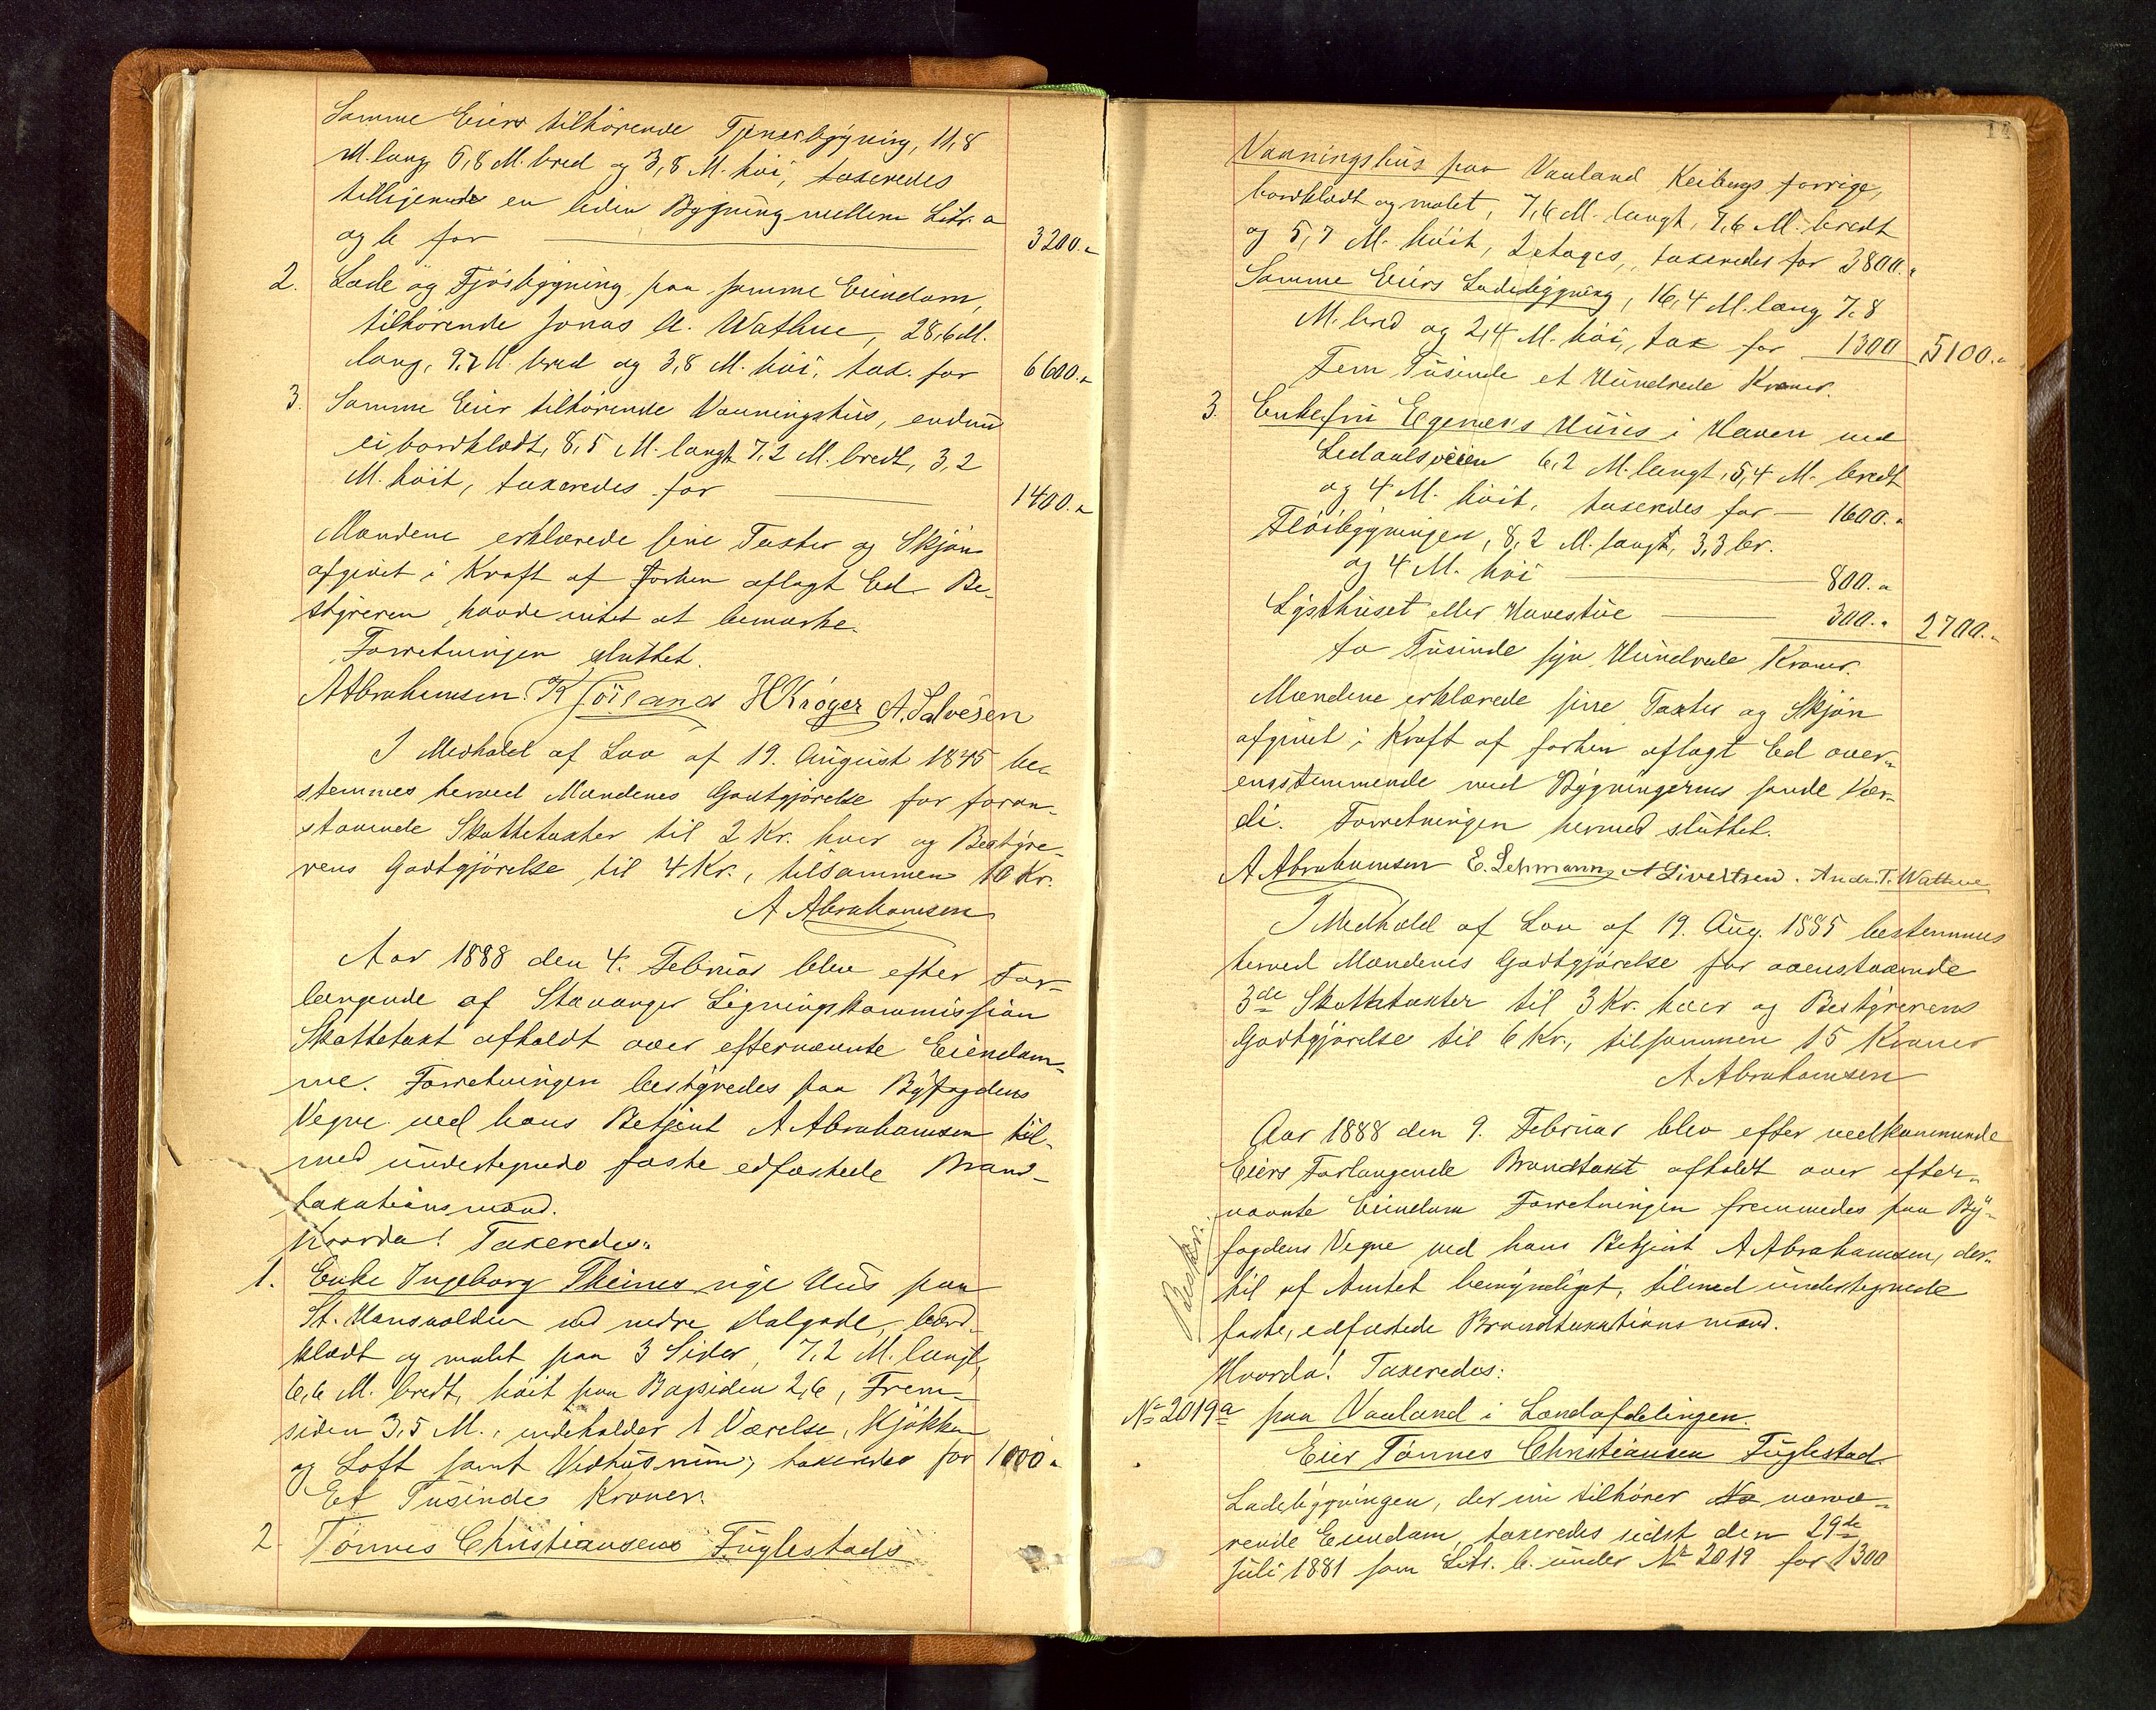 Samme Eiers tilhørende Fjøsbygning, 11,8
M. lang 6,8 M. bred og 3,8 M. høi, taxeredes
tilligemed en liden Bygning mellem Litr. a
og b for 3200.-
2. Lade og Fjøsbygning paa samme Eiendom,
tilhørende Jonas A. Wathne, 28,6 M.
lang, 9,7 M. bred og 3,8 M. høi, tax. for 6600.-
3. Samme Eier tilhørende Vaaningshus, endnu
ei bordklædt, 8,5 M. langt 7,2 M. bredt, 3,2
M. høit, taxeredes for 1400.-
Mændene erklærede sine Taxter og Skjøn
afgivet i Kraft af forhen aflagt Ed. Be-
styreren havde intet at bemærke.
Forretningen sluttet.
A Abrahamsen. H Krøger A. Salvesen
I Medhold af Lov af 19. August 1845 be-
stemmes herved Mændenes Godtgjørelse for foran-
staaende Skattetaxter til 2 Kr. hver og Bestyre-
rens Godtgjørelse til 4 Kr., tilsammen 10 Kr.
A Abrahamsen
Aar 1888 den 4. Februar blev efter For-
langende af Stavanger Ligningskommission
Skattetaxt afholdt over efternævnte Eiendom-
me. Forretningen bestyredes paa Byfogdens
Vegne ved hans Betjent A Abrahamsen til-
med undertegnede faste edfæstede Brand-
taxationsmænd.
Hvorda! Taxeredes:
1. Enke Ingeborg Theines nye Hus paa
St. Hansvolden ved nedre Dalgade, bord-
klædt og malet paa 3 Sider, 7,2 M. langt,
6,6 M. bredt, høit paa Bagsiden 2,6, Frem-
siden 3,5 M., indeholder 1 Værelse, Kjøkken
og Loft samt Vedhusrum, taxeredes for 1000.-
Et Tusinde Kroner.
2 Tønnes Christiansens Fuglestads
Vaaningshus paa Vauland Keibergs forrige,
bordklædt og malet, 7,6 M. langt, 7,6 M. bredt
og 5,7 M. høit, 2 etages, taxeredes for 3800.-
Samme Eiers Ladebygning, 16,4 M. lang 7,8
M. bred og 2,4 M. høi, tax for 1300 5100.-
Fem Tusinde et Hundrede Kroner.
3. Enkefru Egenæs Huus i Haven ved
Ledaalsveien 6,2 M. langt, 5,4 M. bredt
og 4 M. høit, taxeredes for — 1600.-
Fløibygningen, 8,2 M. langt, 3,3 br.
og 4 M. høi 800.-
Lysthuset eller Havestue 300.- 2700.-
to Tusinde syv Hundrede Kroner.
Mændene erklærede sine Taxter og Skjøn
afgivet i Kraft af forhen aflagt Ed over-
ensstemmende med Bygningernes sande Vær-
di. Forretningen hermed sluttet.
A Abrahamsen E. Lehmann A Sivertsen. Andr. T. Wathne
I Medhold af Lov af 19. Aug. 1885 bestemmes
herved Mændenes Godtgjørelse for ovenstaaende
3de Skattetaxter til 3 Kr. hver og Bestyrerens
Godtgjørelse til 6 Kr., tilsammen 15 Kroner
A Abrahamsen
Aar 1888 den 9. Februar blev efter vedkommende
Eiers Forlangende Brandtaxt afholdt over efter-
nævnte Eiendom Forretningen fremmedes paa By-
fogdens Vegne ved hans Betjent A Abrahamsen, der-
til af Amtet bemyndiget, tilmed undertegnede
faste, edfæstede Brandtaxationsmænd.
Beskr.
Hvorda! Taxeredes:
No 2019a paa Vauland i Landafdelingen.
Eier Tønnes Christiansen Fuglestad.
Ladebygningen, der nu tilhører No nærvæ-
rende Eiendom, taxeredes sidst den 29de
Juli 1881 som Litr. b. under No 2019 for 1300